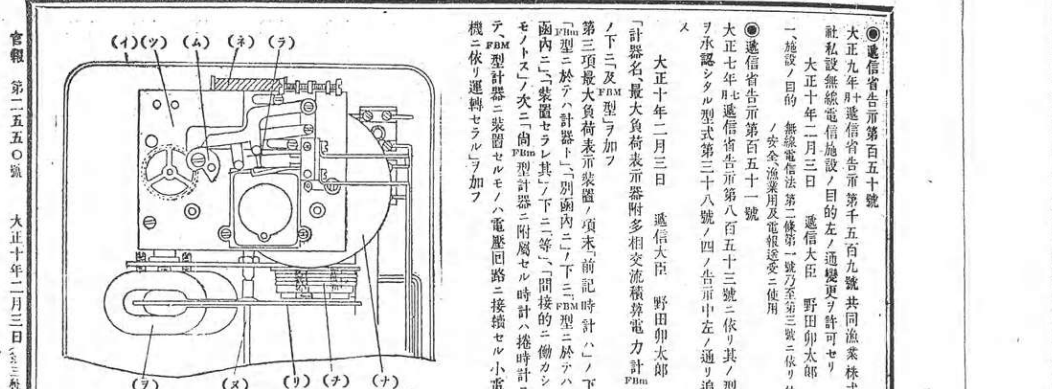 ◉遞信省告示第百五十號
大正九年十月遞信省告示第千五百九號共同漁業株式
社私設無線電信施設ノ目的左ノ通變更ヲ許可セリ
大正十年二月三日 遞信大臣 野田卯太郎
一、施設ノ目的 無線電信法第二條第一號乃至第三號ニ依リ
ノ安全、漁業用及電報送受ニ使用
◉遞信省告示第百五十一號
大正七年七月遞信省告示第八百五十三號ニ依リ其ノ型
ヲ承認シタル型式第三十八號ノ四ノ告示中左ノ通リ追
ス
大正十年二月三日 遞信大臣 野田卯太郎
「計器名、最大負荷表示器附多相交流積算電力計FBm
ノ下ニ「及FBM型」ヲ加フ
第三項最大負荷表示裝置ノ項末「前記時計ハ」ノ下
「FBm型ニ於テハ計器ト」、「別函內ニ」ノ下ニ「FBM型ニ於テハ
函內ニ」、「裝置セラレ其」ノ下ニ「等」、「間接的ニ働カシ
モノトス」ノ次ニ「尚FBm型計器ニ附屬セル時計ハ捲時計
テ、FBM型計器ニ裝置セルモノハ電壓回路ニ接續セル小電
機ニ依リ運轉セラル」ヲ加フ
(イ)(ツ) (ム) (ネ) (ラ)
(ヲ) (ヌ) (リ) (チ) (ナ)
官報 第二五五〇號 大正十年二月三日